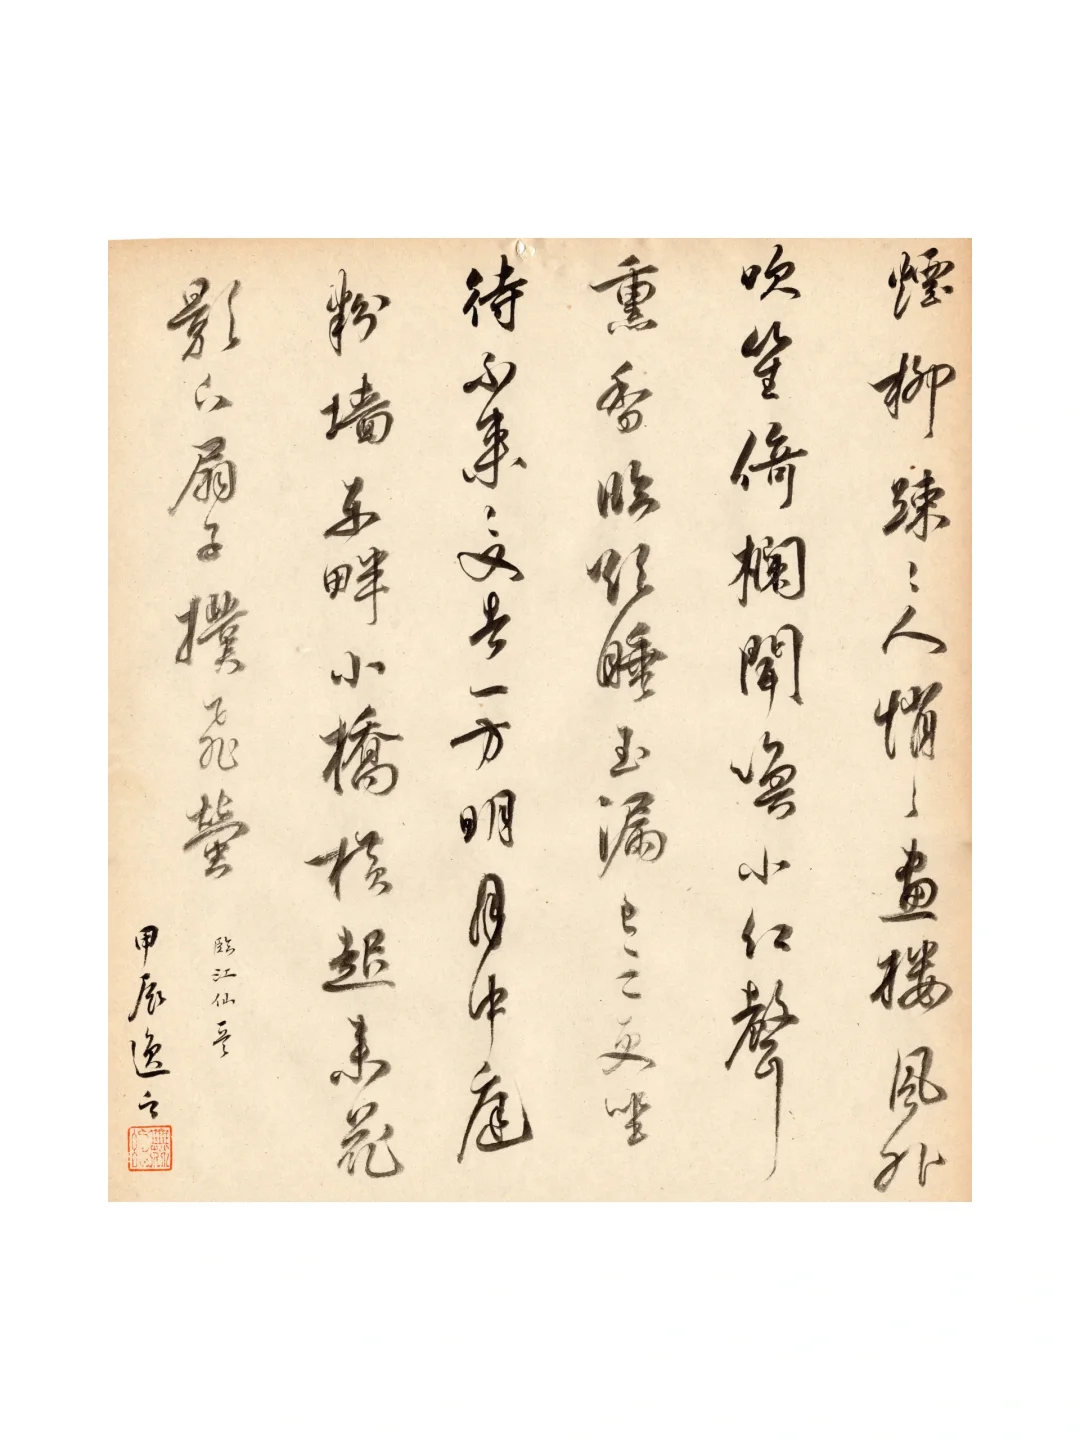 煙柳疎〻人悄〻畫樓風外
吹笙倚欄聞喚小紅聲
熏香臨欲睡玉漏已三更坐
待不来〻又去一方明月中庭
粉墙东畔小橋横起来花
影下扇子撲飛螢
臨江仙
甲辰逸